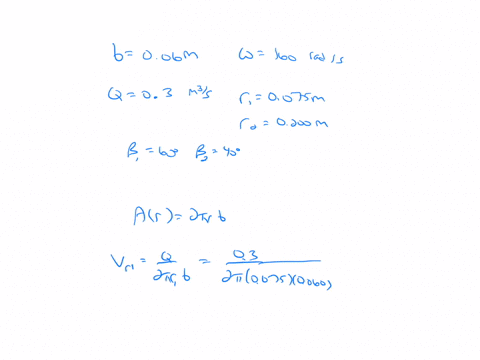 b = 0.06m ω = 160 rad/s
Q = 0.3 m³/s r₁ = 0.075m
r₂ = 0.200m
β₁ = 60° β₂ = 40°
A(r) = 2πr b
Vr₁ = Q / 2πr₁ b = 0.3 / 2π(0.075)(0.060)